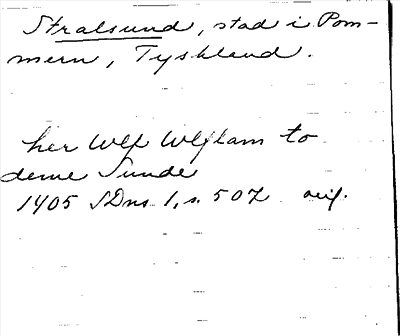 Stralsund, stad i Pom-
mern, Tyskland.
her Wlf Wlflam to
deme Sunde
1405 SDns 1, s. 507 orig.